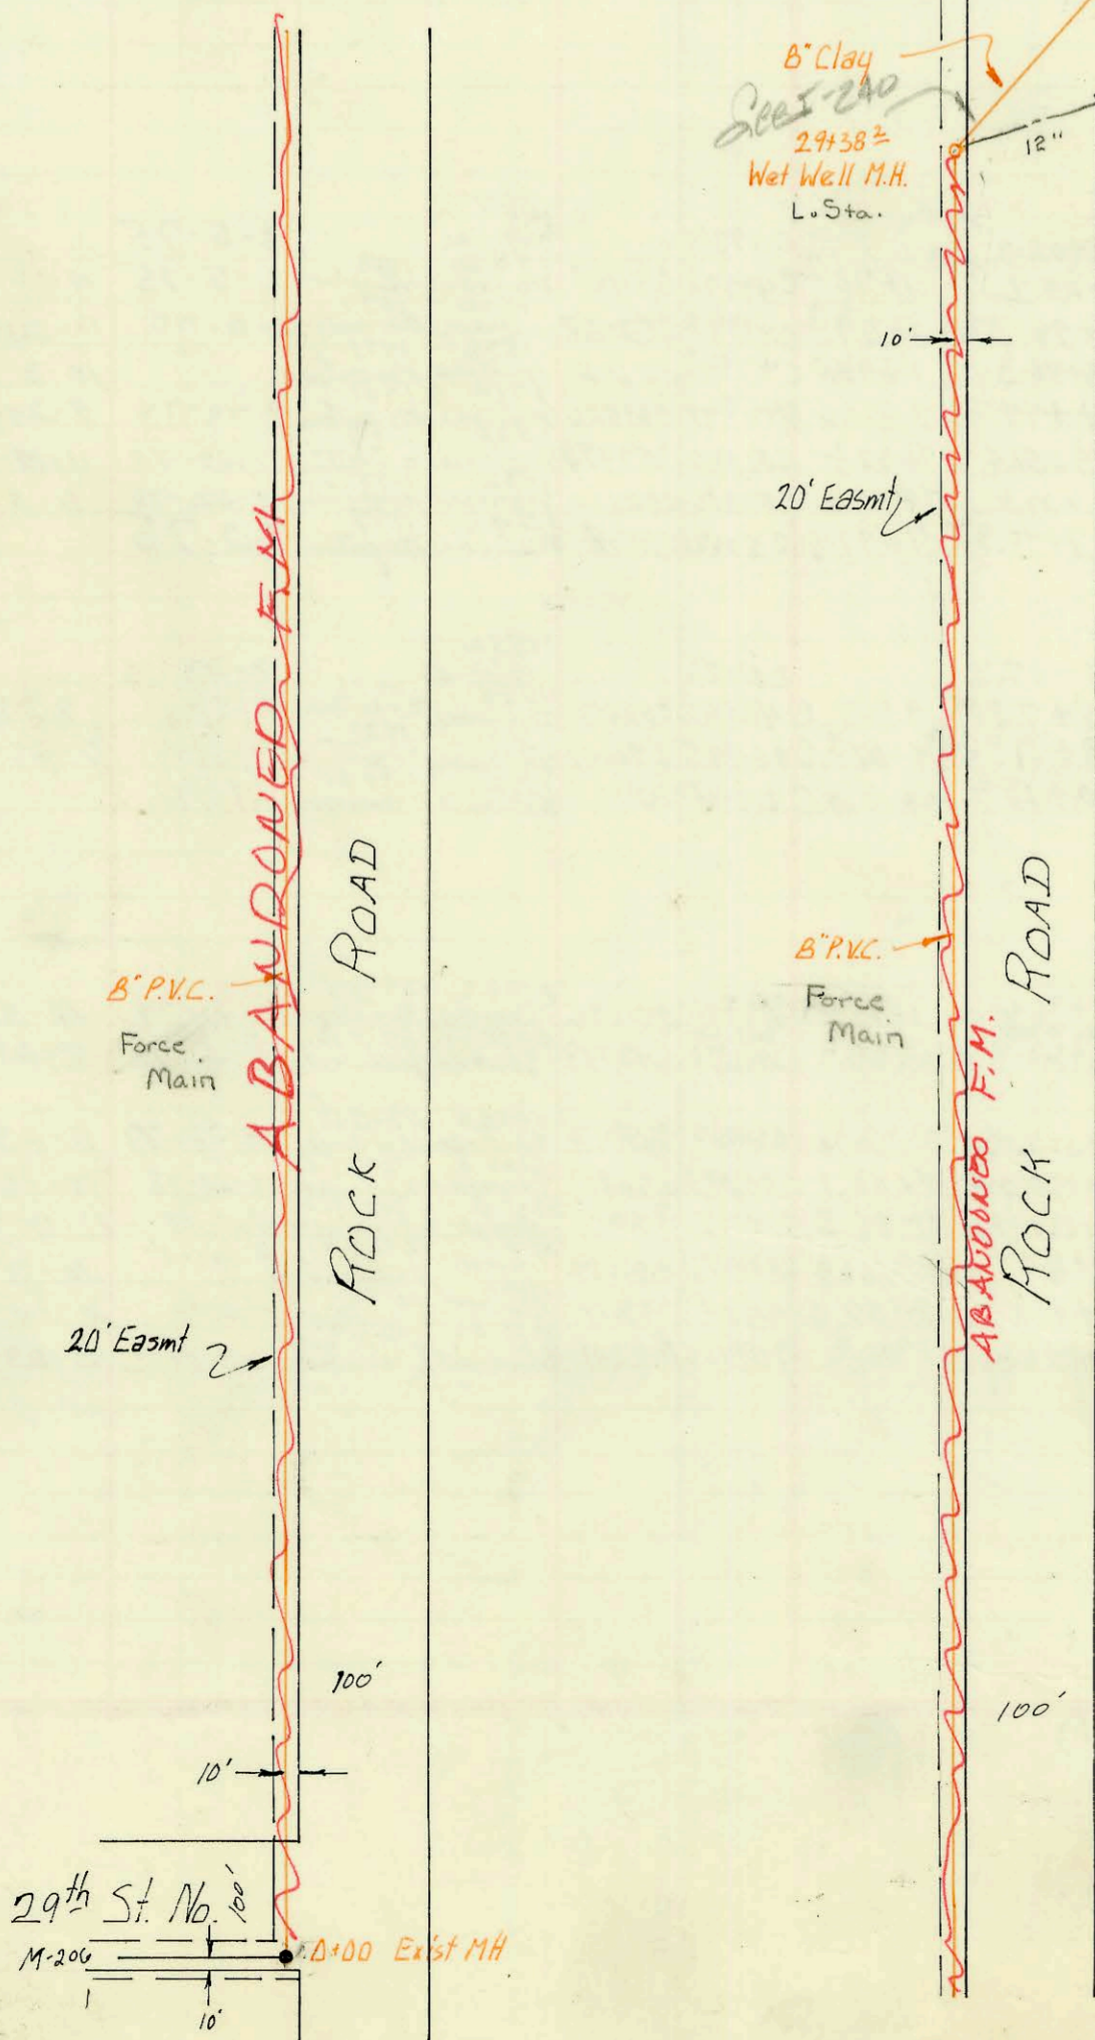 ABANDONED F.M.
8" P.V.C.
Force
Main
ROCK ROAD
20' Easmt
100'
10'
29th St. No.
100'
M-206
10'
0+00 Exist MH
8" Clay
See I-240
29+38²
Wet Well M.H.
L. Sta.
12"
10'
20' Easmt
8" P.V.C.
Force
Main
ABANDONED F.M.
ROCK ROAD
100'